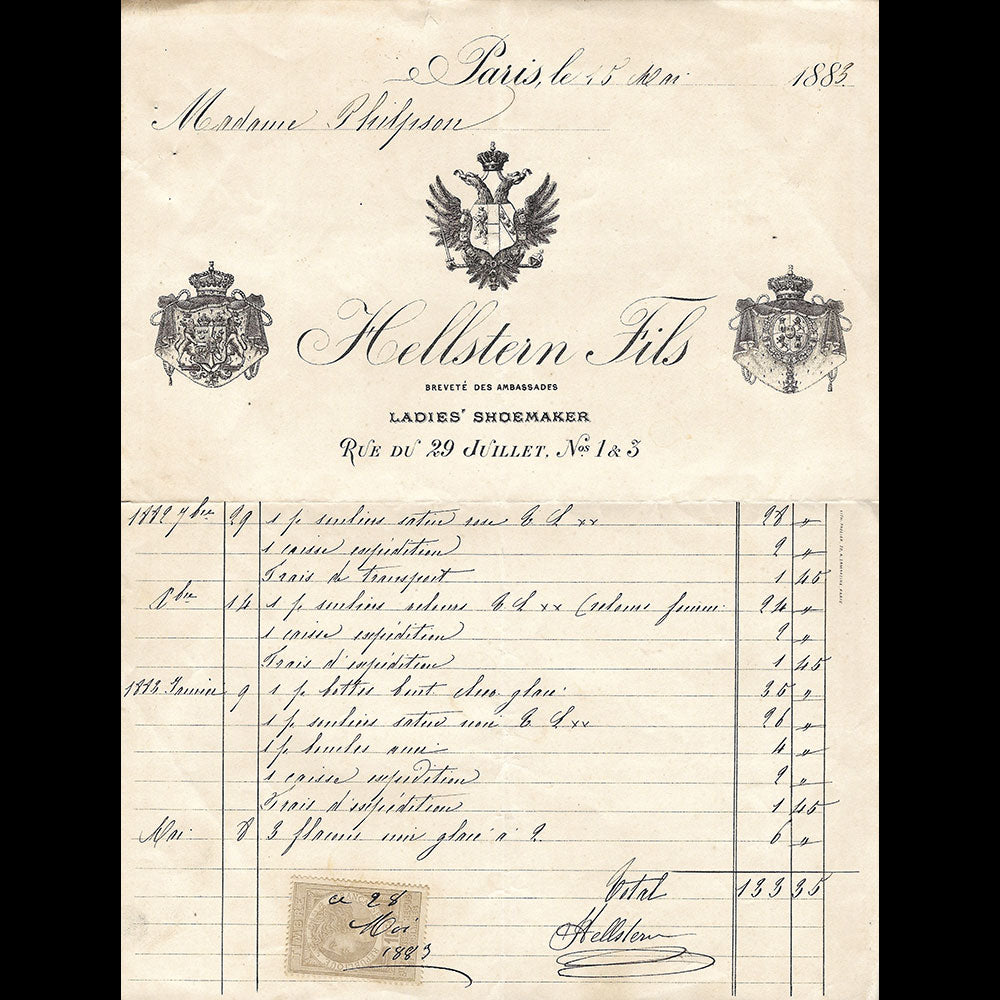 Paris, le 25 Mai 1883
Madame Philipson
Hellstern Fils
BREVETÉ DES AMBASSADES
LADIES' SHOEMAKER
RUE DU 29 JUILLET. Nos 1 & 3
1882 7bre 29 1 p. souliers satin rose 28 "
1 caisse expédition 2 "
Frais de transport 1 45
8bre 14 1 p. souliers velours (velours fourni 24 "
1 caisse expédition 2 "
Frais d'expédition 1 45
1883 Janvier 9 1 p. bottes bout glacé 35 "
1 p. souliers satin noir 26 "
1 p. boucles 4 "
1 caisse expédition 2 "
Frais d'expédition 1 45
Mai 8 3 flacons noir glacé à 2 6 "
Total 133 35
ce 28
Mai
1883
Hellstern